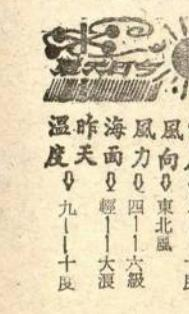 今日天氣
風向⇩東北風
風力⇩四——六級
海面⇩輕——大浪
昨天溫度⇩九——十度